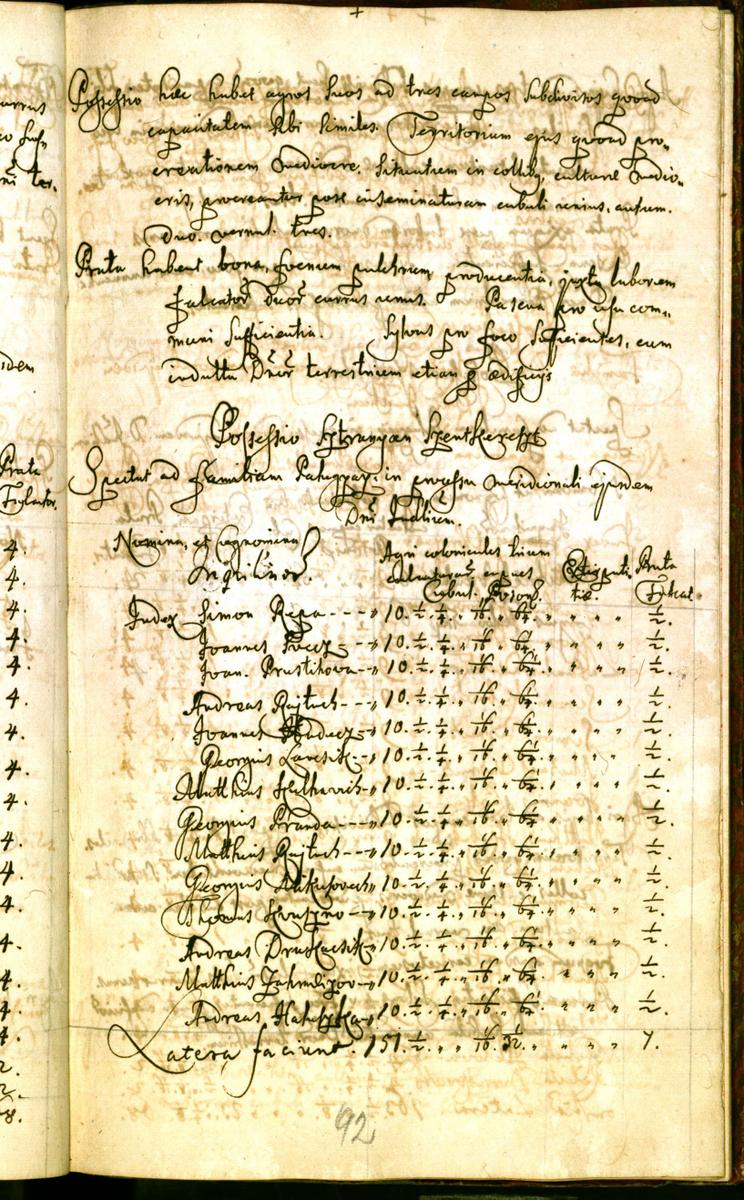 Possessio hæc habet agros suos ad tres campos subdivisos quoad
capacitatem sibi similes. Territorium ejus quoad pro„
creationem mediocre. Situatum in collib, culturæ medio„
cris, procreantur post inseminaturam cubuli unius, autum.
duo. vernal. tres.
Prata habent bona, foenum pulchrum producentia, juxta laborem
falcator duor currus unus. Pascua pro usu com„
muni sufficientia. Sylvas pro foco sufficientes, cum
indultu Dnor terrestrium etiam p ædificijs
Possessio Sztranyan Szentkereszt
Spectat ad familiam in processu meridionali ejusdem
Dni Judlium.
Nomina, et Cognomina
Inqilinor.
Agri colonicales trium
culturar, capaces
Cubul. Poson.
Extirpati
tiæ.
Prata
Falcat.
Index Simon Repa --- „ 10. 1/2. 1/4. „ 1/16. „ 1/64. „ „ „ „ 1/2.
Joannes „ 10. 1/2. 1/4. „ 1/16. „ 1/64. „ „ „ „ 1/2.
Joan. Prustihova - „ 10. 1/2. 1/4. „ 1/16. „ 1/64. „ „ „ „ 1/2.
Andreas Rajtuch --- „ 10. 1/2. 1/4. „ 1/16. „ 1/64. „ „ „ „ 1/2.
Joannes Hudecz „ 10. 1/2. 1/4. „ 1/16. „ 1/64. „ „ „ „ 1/2.
Georgius Lavcsik - „ 10. 1/2. 1/4. „ 1/16. „ 1/64. „ „ „ „ 1/2.
Matthias „ 10. 1/2. 1/4. „ 1/16. „ 1/64. „ „ „ „ 1/2.
Georgius Branda --- „ 10. 1/2. 1/4. „ 1/16. „ 1/64. „ „ „ „ 1/2.
Matthias Rajtuch --- „ 10. 1/2. 1/4. „ 1/16. „ 1/64. „ „ „ „ 1/2.
Georgius „ 10. 1/2. 1/4. „ 1/16. „ 1/64. „ „ „ „ 1/2.
Thomas „ 10. 1/2. 1/4. „ 1/16. „ 1/64. „ „ „ „ 1/2.
Andreas „ 10. 1/2. 1/4. „ 1/16. „ 1/64. „ „ „ „ 1/2.
Matthias „ 10. 1/2. 1/4. „ 1/16. „ 1/64. „ „ „ „ 1/2.
Andreas „ 10. 1/2. 1/4. „ 1/16. „ 1/64. „ „ „ „ 1/2.
Latera faciunt. 151. 1/2. „ „ 1/16. 1/32. „ „ „ „ 7.
92